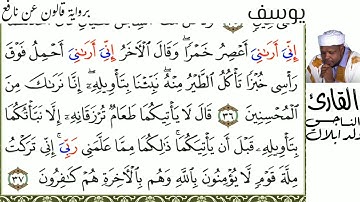 برواية قالون عن نافع
يوسف
إِنِّيَ أَرَىٰنِيَ أَعْصِرُ خَمْرًا وَقَالَ اَلْأٓخَرُ إِنِّيَ أَرَىٰنِيَ أَحْمِلُ فَوْقَ
رَأْسِي خُبْزًا تَأْكُلُ اُلطَّيْرُ مِنْهُ نَبِّئْنَا بِتَأْوِيلِهِۦ إِنَّا نَرَىٰكَ مِنَ
اَلْمُحْسِنِينَ ٣٦ قَالَ لَا يَأْتِيكُمَا طَعَامٌ تُرْزَقَانِهِۦ إِلَّا نَبَّأْتُكُمَا
بِتَأْوِيلِهِۦ قَبْلَ أَنْ يَأْتِيَكُمَا ذَٰلِكُمَا مِمَّا عَلَّمَنِي رَبِّيَ إِنِّي تَرَكْتُ
مِلَّةَ قَوْمٍ لَّا يُؤْمِنُونَ بِاللَّهِ وَهُم بِالْأٓخِرَةِ هُمْ كَٰفِرُونَ ٣٧
القارئ
الناجي
ولد ابلال